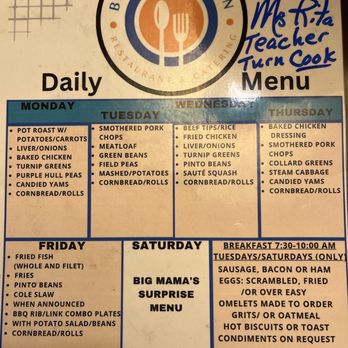 RESTAURANT & CATERING
Ms Rita
Teacher
Turn Cook
Daily Menu
MONDAY
POT ROAST W/
POTATOES/CARROTS
LIVER/ONIONS
BAKED CHICKEN
TURNIP GREENS
PURPLE HULL PEAS
CANDIED YAMS
CORNBREAD/ROLLS
TUESDAY
SMOTHERED PORK
CHOPS
MEATLOAF
GREEN BEANS
FIELD PEAS
MASHED/POTATOES
CORNBREAD/ROLLS
WEDNESDAY
BEEF TIPS/RICE
FRIED CHICKEN
LIVER/ONIONS
TURNIP GREENS
PINTO BEANS
SAUTÉ SQUASH
CORNBREAD/ROLLS
THURSDAY
BAKED CHICKEN
DRESSING
SMOTHERED PORK
CHOPS
COLLARD GREENS
STEAM CABBAGE
CANDIED YAMS
CORNBREAD/ROLLS
FRIDAY
FRIED FISH
(WHOLE AND FILET)
FRIES
PINTO BEANS
COLE SLAW
WHEN ANNOUNCED
BBQ RIB/LINK COMBO PLATES
WITH POTATO SALAD/BEANS
CORNBREAD/ROLLS
SATURDAY
BIG MAMA'S
SURPRISE
MENU
BREAKFAST 7:30-10:00 AM
TUESDAYS/SATURDAYS (ONLY)
SAUSAGE, BACON OR HAM
EGGS: SCRAMBLED, FRIED
/OR OVER EASY
OMELETS MADE TO ORDER
GRITS/ OR OATMEAL
HOT BISCUITS OR TOAST
CONDIMENTS ON REQUEST